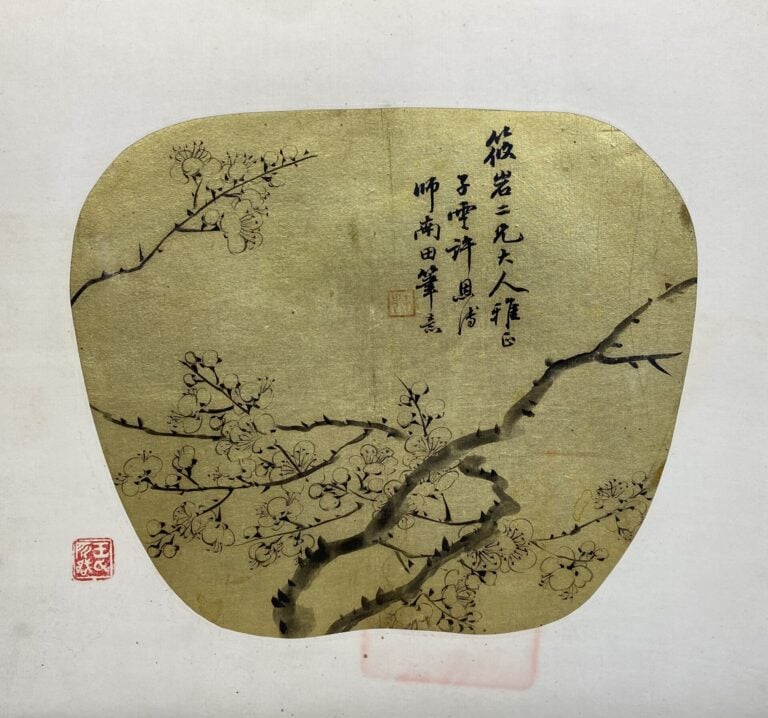 筱岩二兄大人雅正
子雲許恩
師南田筆意
王氏